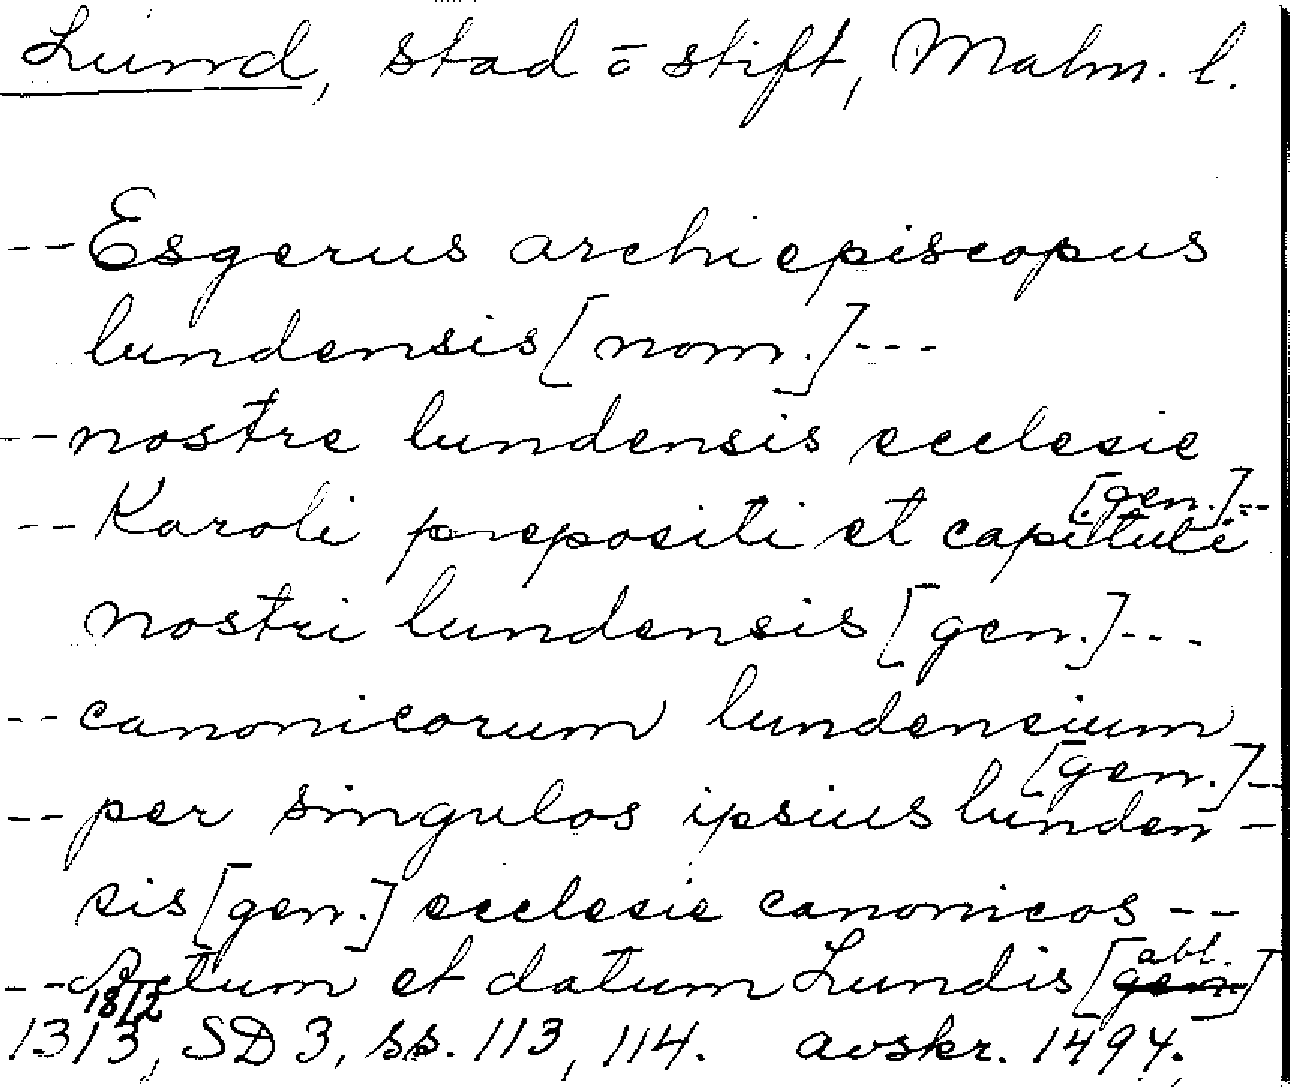 Lund, stad ō stift, Malm. l.
-- Esgerus archiepiscopus
lundensis [nom.] ---
-- nostre lundensis ecclesie
[gen.] --
-- Karoli prepositi et capituli
nostri lundensis [gen.] ---
-- canonicorum lundensium
[gen.] --
-- per singulos ipsius lunden-
sis [gen.] ecclesie canonicos --
-- Actum et datum Lundis [abl. gen.]
18/2
1313, SD 3, ss. 113, 114. avskr. 1494.